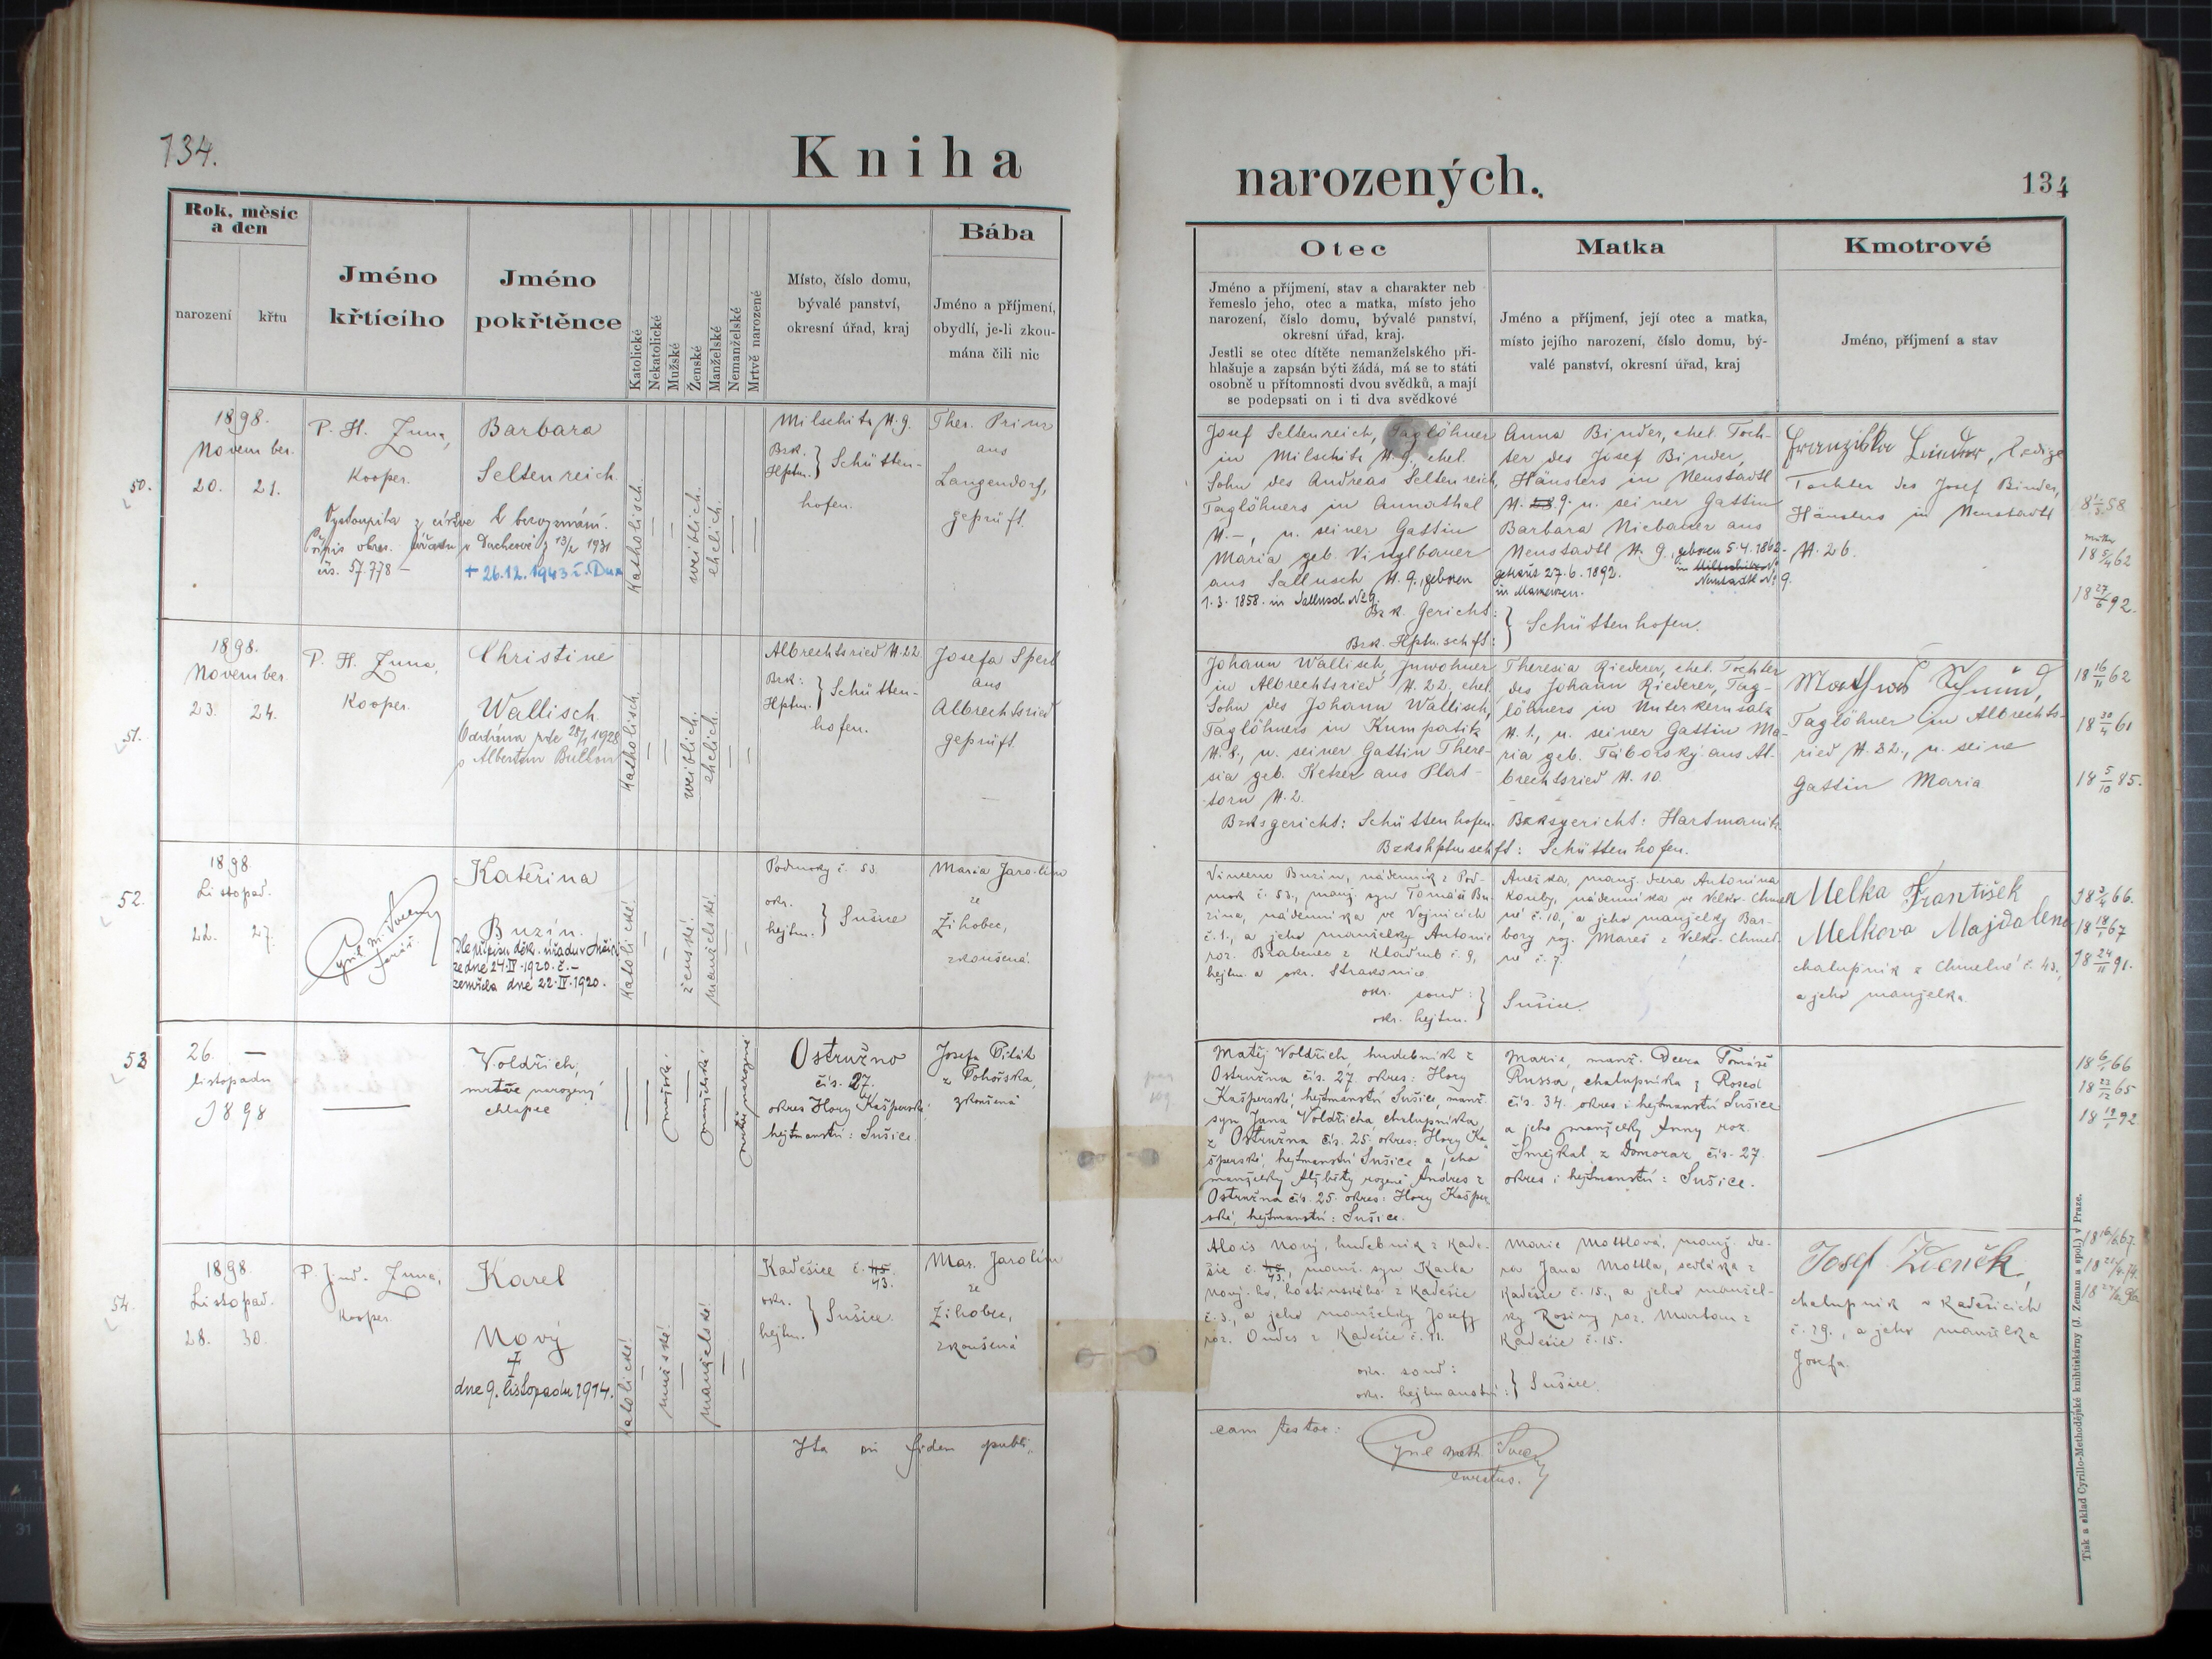 134.
Kniha
narozených.
134
Rok, měsíc
a den
narození
křtu
Jméno
křtícího
Jméno
pokřtěnce
Katolické
Nekatolické
Mužské
Ženské
Manželské
Nemanželské
Mrtvě narozené
Místo, číslo domu,
bývalé panství,
okresní úřad, kraj
Bába
Jméno a příjmení,
obydlí, je-li zkou-
mána čili nic
Otec
Jméno a příjmení, stav a charakter neb
řemeslo jeho, otec a matka, místo jeho
narození, číslo domu, bývalé panství,
okresní úřad, kraj.
Jestli se otec dítěte nemanželského při-
hlašuje a zapsán býti žádá, má se to státi
osobně u přítomnosti dvou svědků, a mají
se podepsati on i ti dva svědkové
Matka
Jméno a příjmení, její otec a matka,
místo jejího narození, číslo domu, bý-
valé panství, okresní úřad, kraj
Kmotrové
Jméno, příjmení a stav
50.
1898.
November.
20. 21.
P. H. Zuna,
Kooper.
Barbara
Seltenreich.
Vystoupila z církve k bezvyznání.
Přípis okres. úřadu v Dachově z 13/2 1931
čís. 57.778 –
+ 26.12.1943
Katholisch.
weiblich.
ehelich.
Milschitz N. 9.
Bzk.
Hptm. } Schütten-
hofen.
Ther. Prinz
aus
Langendorf,
geprüft.
Josef Seltenreich, Taglöhner
in Milschitz N. 9, ehel.
Sohn des Andreas Seltenreich,
Taglöhners in Annathal
N. –, u. seiner Gattin
Maria geb. Vinglbauer
aus Sallusch N. 9, geboren
1.3.1858. in Sallusch No 9.
Bzk. Gericht:
Bzk. Hptm.schft: } Schüttenhofen.
Anna Binder, ehel. Toch-
ter des Josef Binder,
Häuslers in Neustadtl
N. 9. u. seiner Gattin
Barbara Niebauer aus
Neustadtl N. 9., geboren 5.4.1862
in Milschitz No
Neustadtl No 9.
getraut 27.6.1892.
in
Franziska Binder, ledige
Tochter des Josef Binder,
Häuslers in Neustadtl
N. 26.
18 1/3 58
18 5/4 62
18 27/6 92.
51.
1898.
November.
23. 24.
P. H. Zuna,
Kooper.
Christine
Wallisch.
Oddána zde 28/1 1928
s Albertem
Katholisch.
weiblich.
ehelich.
Albrechtsried N. 22.
Bzk:
Hptm. } Schütten-
hofen.
Josefa Sperl
aus
Albrechtsried
geprüft.
Johann Wallisch, Inwohner
in Albrechtsried N. 22. ehel.
Sohn des Johann Wallisch,
Taglöhners in Kumpatitz
N. 8, u. seiner Gattin There-
sia geb. Ketzer aus Plat-
torn N. 2.
Bzksgericht: Schüttenhofen.
Theresia Riederer, ehel. Tochter
des Johann Riederer, Tag-
löhners in Unterkörnsalz
N. 1., u. seiner Gattin Ma-
ria geb. Táborský aus Al-
brechtsried N. 10.
Bzksgericht: Hartmanitz.
Bzkshptmschft: Schüttenhofen.
Mathias
Taglöhner in Albrechts-
ried N. 32., u. seine
Gattin Maria
18 16/11 62
18 30/4 61
18 5/10 85.
52.
1898.
Listopad.
22. 27.
Cyril M.
farář.
Kateřina
Buzín.
Dle přípisu děk. úřadu v Sušici
ze dne 24.IV.1920. č. –
zemřela dne 22.IV.1920.
Katolické.
ženské.
manželské.
Podmoky č. 53.
okr.
hejtm. } Sušice
Maria Jarolím
ze
Žihobec,
zkoušená.
Vincenc Buzin, nádenník z Pod-
mok č. 53., manž. syn Tomáše Bu-
zina, nádenníka ve Vojnicích
č. 1., a jeho manželky Antonie
roz. Brabenec z Kladrub č. 9,
hejtm. a okr. Strakonice
okr. soud:
okr. hejtm. } Sušice.
Anežka, manž. dcera Antonína
Kouby, nádenníka ve Velké Chmel-
né č. 10, a jeho manželky Bar-
bory roz. Mareš z Velké Chmel-
né č. 7.
Melka František
Melkova Majdalena
chalupník z Chmelné č. 43.,
a jeho manželka.
18 3/4 66.
18 18/7 67
18 24/11 91.
53
26. –
listopadu
1898
Voldřich,
mrtvě narozený
chlapec
mužské
manželské
mrtvě narozené
Ostružno
čís. 27.
okres Hory Kašperské
hejtmanství: Sušice.
Josefa Pilát
z Pohorska,
zkoušená
Matěj Voldřich, hudebník z
Ostružna čís. 27. okres: Hory
Kašperské, hejtmanství Sušice, manž.
syn Jana Voldřicha, chalupníka
z Ostružna čís. 25. okres: Hory Ka-
šperské, hejtmanství Sušice a jeho
manželky Alžběty rozené Andres z
Ostružna čís. 25. okres: Hory Kašper-
ské, hejtmanství: Sušice.
Marie, manž. dcera Tomáše
Russa, chalupníka z Rosed
čís. 34. okres i hejtmanství Sušice
a jeho manželky Anny roz.
Smejkal z Domoraz čís. 27.
okres i hejtmanství: Sušice.
18 6/1 66
18 23/12 65
18 19/1 92
54.
1898.
Listopad.
28. 30.
P. Jind. Zuna,
Kooper.
Karel
Nový
+
dne 9. listopadu 1914.
Katolické.
mužské.
manželské.
Kadešice č. 45.
43.
okr.
hejtm. } Sušice.
Mar. Jarolím
ze
Žihobec,
zkoušená
Alois Nový, hudebník z Kade-
šic č. 45., manž. syn Karla
43.
Nového, hostinského z Kadešic
č. 3., a jeho manželky Josefy
roz. Ondes z Kadešic č. 11.
okr. soud:
okr. hejtmanství: } Sušice.
Marie Mottlová, manž. dce-
ra Jana Mottla, sedláka z
Kadešic č. 15., a jeho manžel-
ky Rosiny roz. Martan z
Kadešic č. 15.
Josef
chalupník v Kadešicích
č. 29., a jeho manželka
Josefa.
Ita in fidem publi-
cam testor:
Cyril Meth.
curatus.
Tisk a sklad Cyrillo-Methodějské knihtiskárny (J. Zeman a spol.) v Praze.